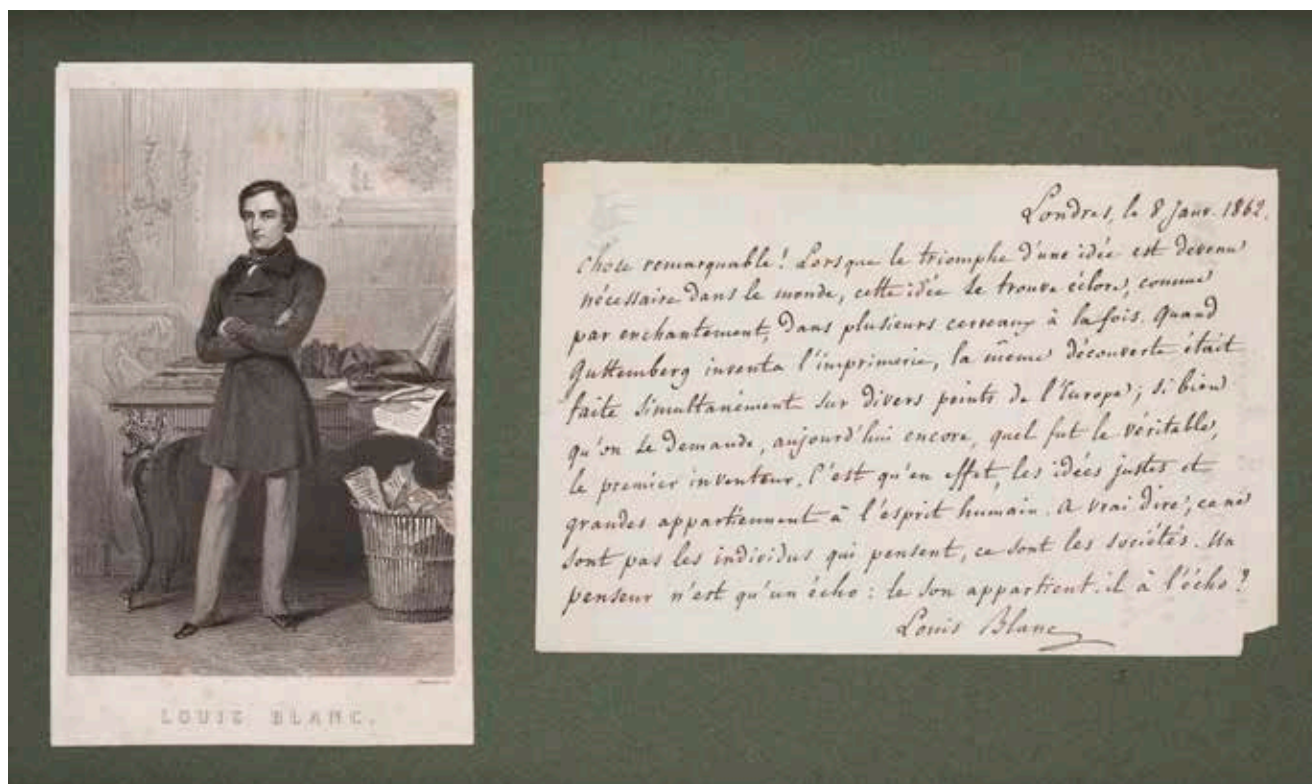 LOUIS BLANC.
Londres, le 8 Janv. 1862.
Chose remarquable! Lorsque le triomphe d'une idée est devenu
nécessaire dans le monde, cette idée se trouve éclore, comme
par enchantement, dans plusieurs cerveaux à la fois. Quand
Guttemberg inventa l'imprimerie, la même découverte était
faite simultanément sur divers points de l'Europe; si bien
qu'on se demande, aujourd'hui encore, quel fut le véritable,
le premier inventeur. C'est qu'en effet, les idées justes et
grandes appartiennent à l'esprit humain. A vrai dire, ce ne
sont pas les individus qui pensent, ce sont les sociétés. Un
penseur n'est qu'un écho: le son appartient-il à l'écho?
Louis Blanc